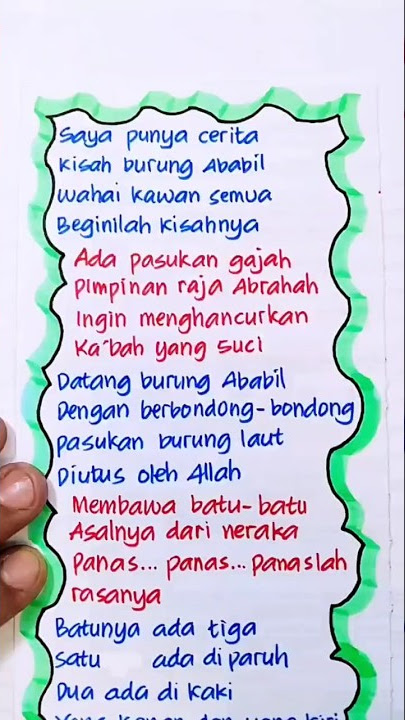 Saya punya cerita
Kisah burung Ababil
Wahai kawan semua
Beginilah kisahnya
Ada pasukan gajah
Pimpinan raja Abrahah
Ingin menghancurkan
Ka'bah yang suci
Datang burung Ababil
Dengan berbondong-bondong
pasukan burung laut
Diutus oleh Allah
Membawa batu-batu
Asalnya dari neraka
Panas... panas... panaslah
rasanya
Batunya ada tiga
Satu ada di paruh
Dua ada di kaki
Yang kanan dan yang kiri